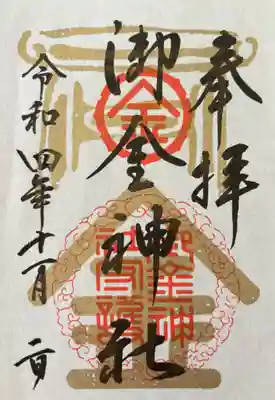 奉拝
御金神社
金
御金神
社守護
令和四年十一月二日